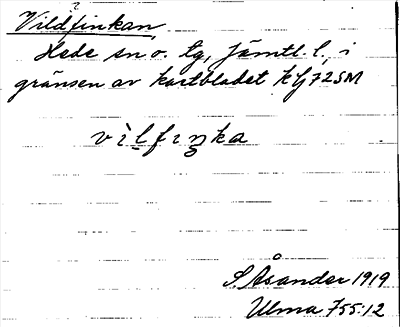 Vildfinkan
Hede sn o. tg, Jämtl. l., i
gränsen av kartbladet
vìlfiŋka
S Åsander 1919
Ulma 755:12